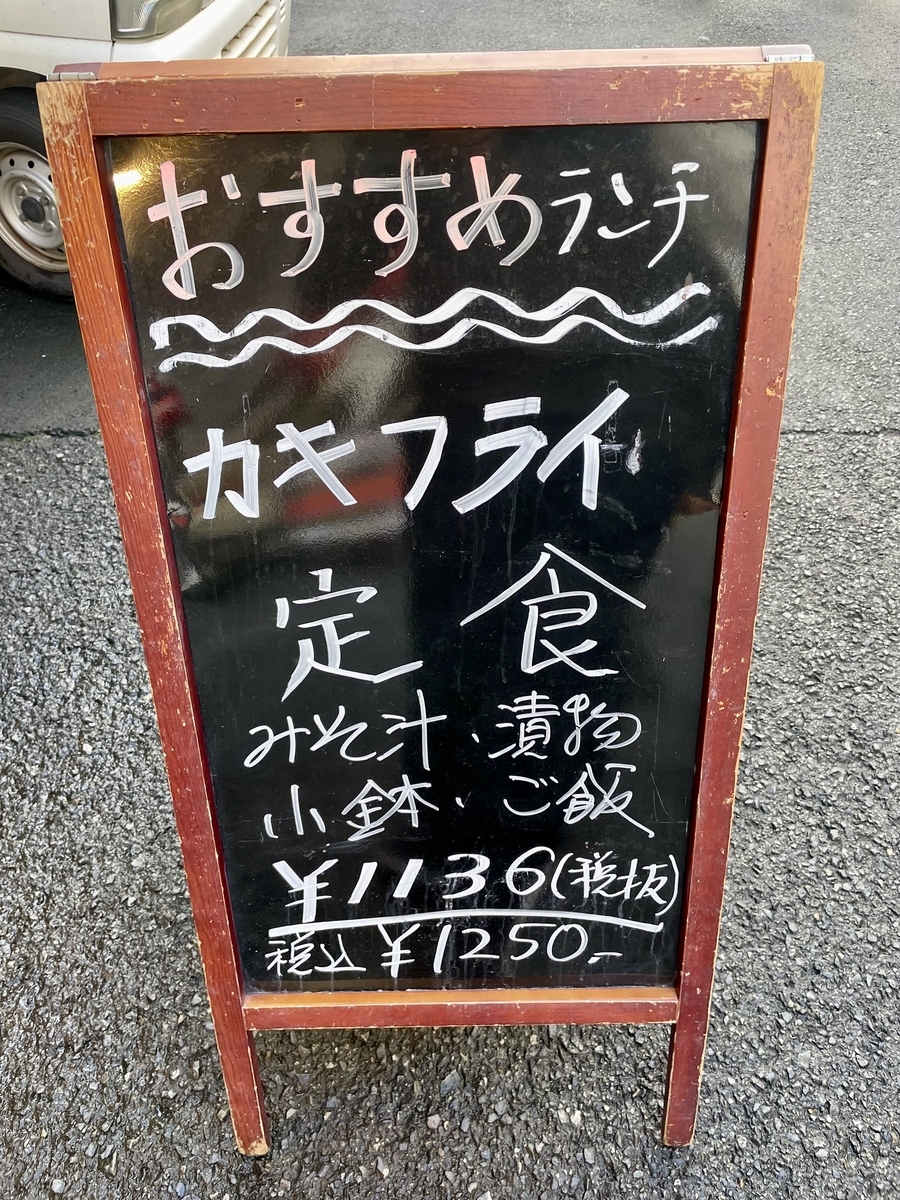 おすすめランチ
カキフライ
定食
みそ汁、漬物
小鉢、ご飯
¥1136(税抜)
税込¥1250.-